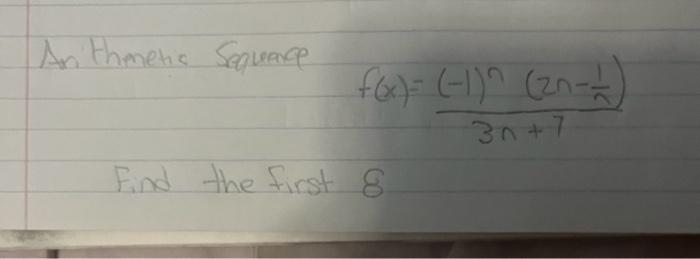 Arithmetic Sequence
f(x) = (-1)^n (2n - 1/n) / 3n + 7
Find the first 8